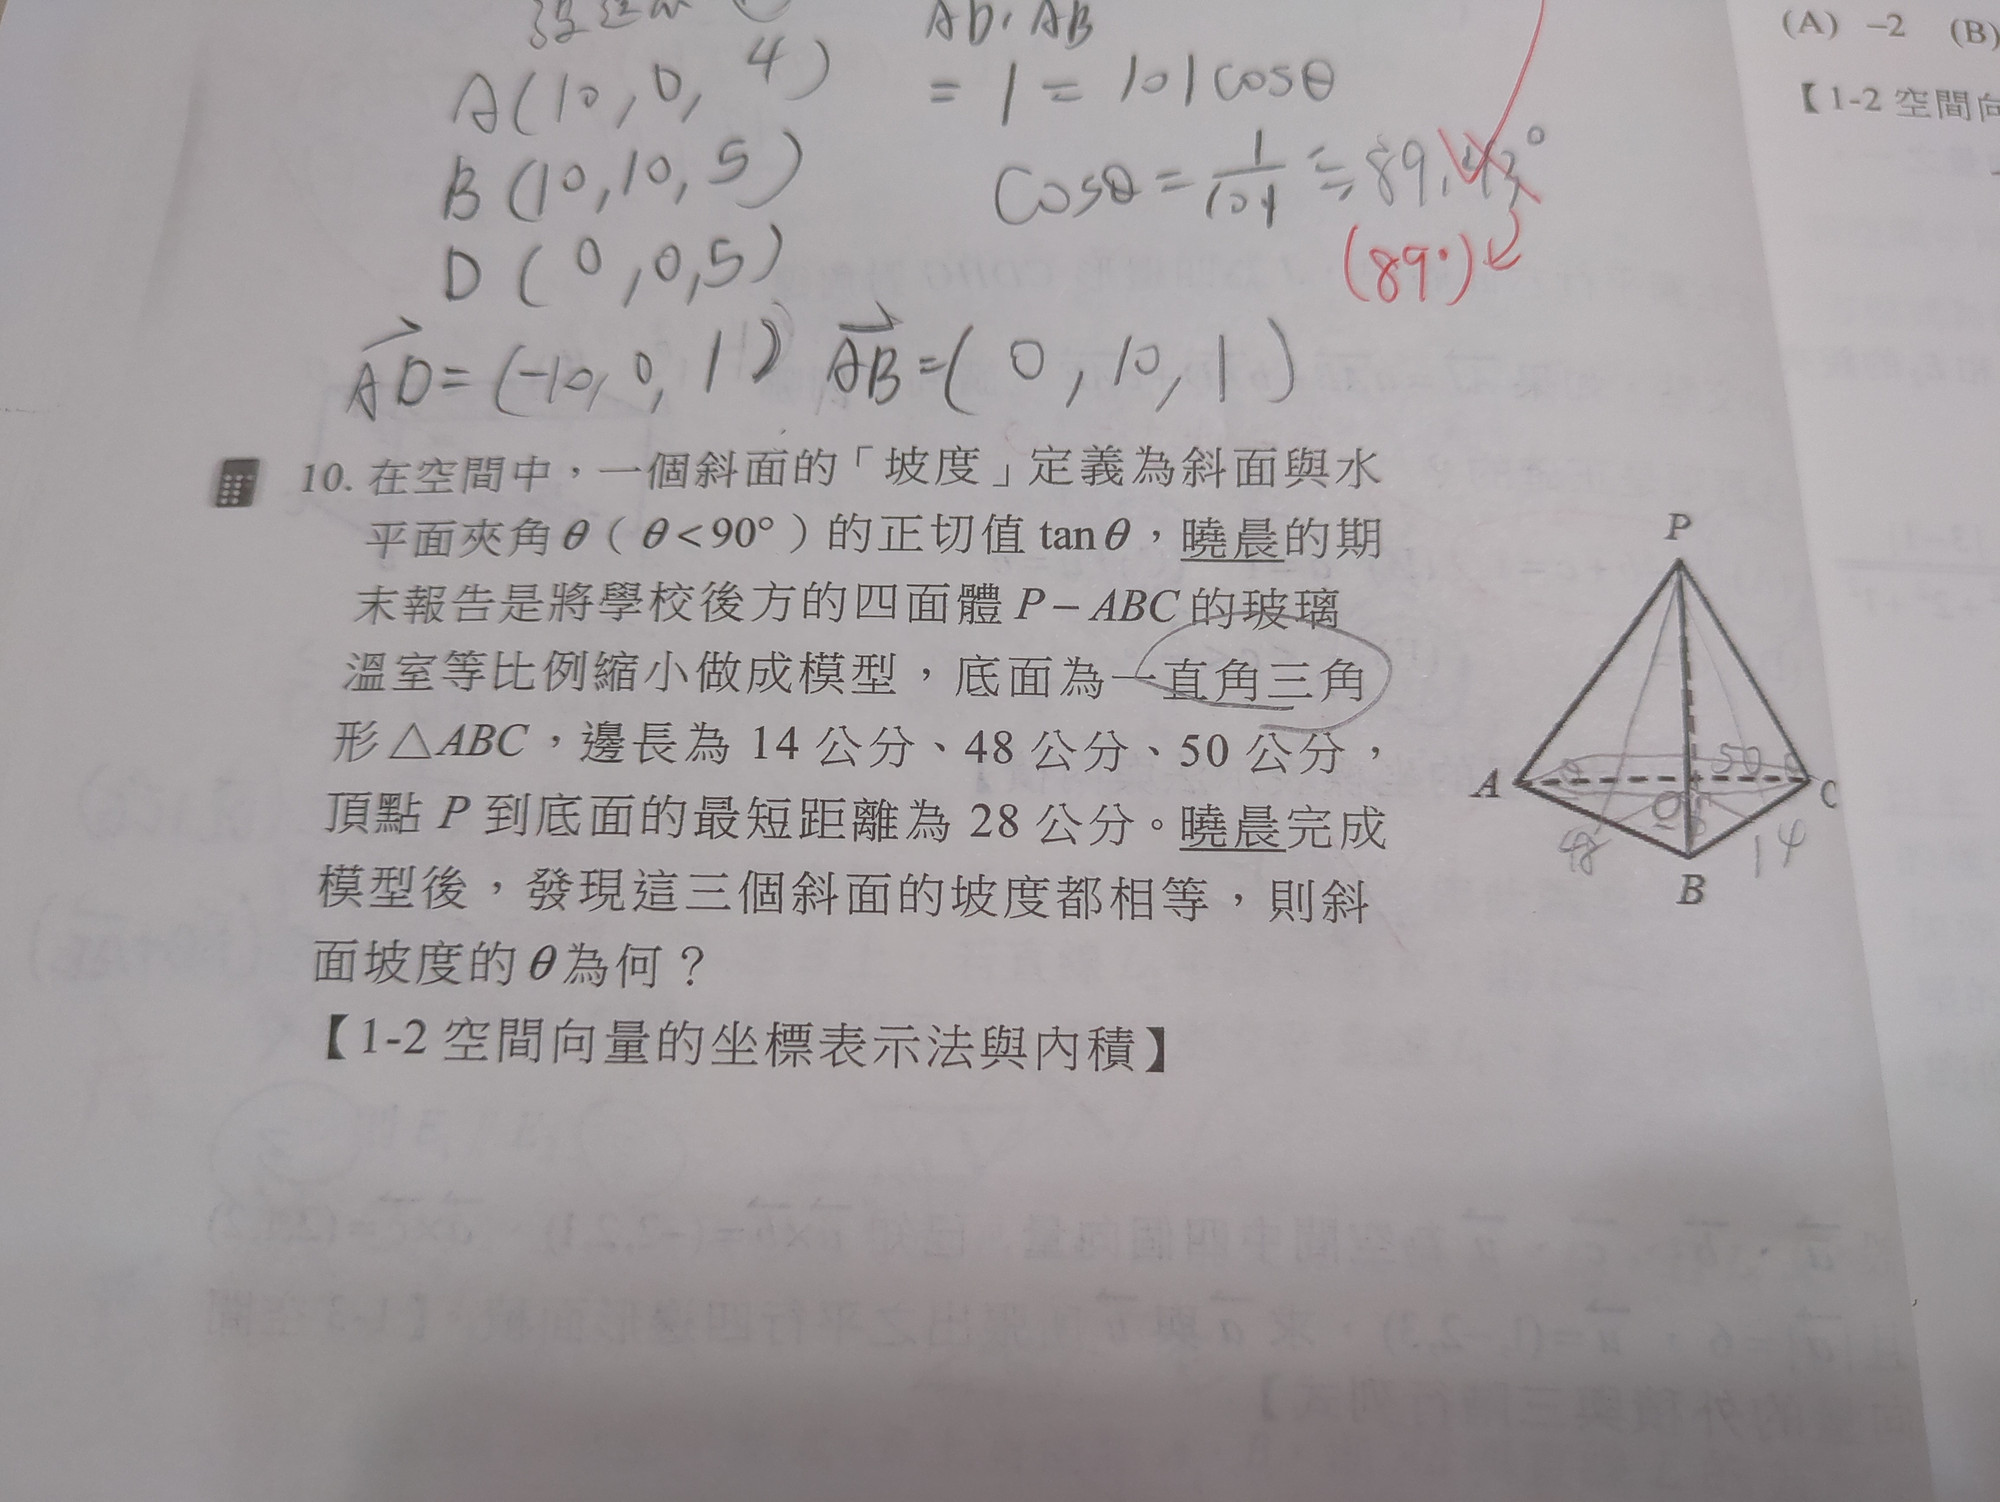 AD · AB
(A) −2 (B)
A(10, 0, 4)
= 1 = 101cosθ
【1-2 空間向
B(10,10, 5)
Cosθ = 1/101 ≒ 89.43°
(89°)
D( 0, 0, 5)
AD = (-10, 0, 1) AB = ( 0, 10, 1 )
10. 在空間中，一個斜面的「坡度」定義為斜面與水
平面夾角θ（θ<90°）的正切值 tanθ，曉晨的期
末報告是將學校後方的四面體 P－ABC 的玻璃
溫室等比例縮小做成模型，底面為一直角三角
形△ABC，邊長為 14 公分、48 公分、50 公分，
頂點 P 到底面的最短距離為 28 公分。曉晨完成
模型後，發現這三個斜面的坡度都相等，則斜
面坡度的θ為何？
【1-2 空間向量的坐標表示法與內積】
P
50
A
C
48
14
B